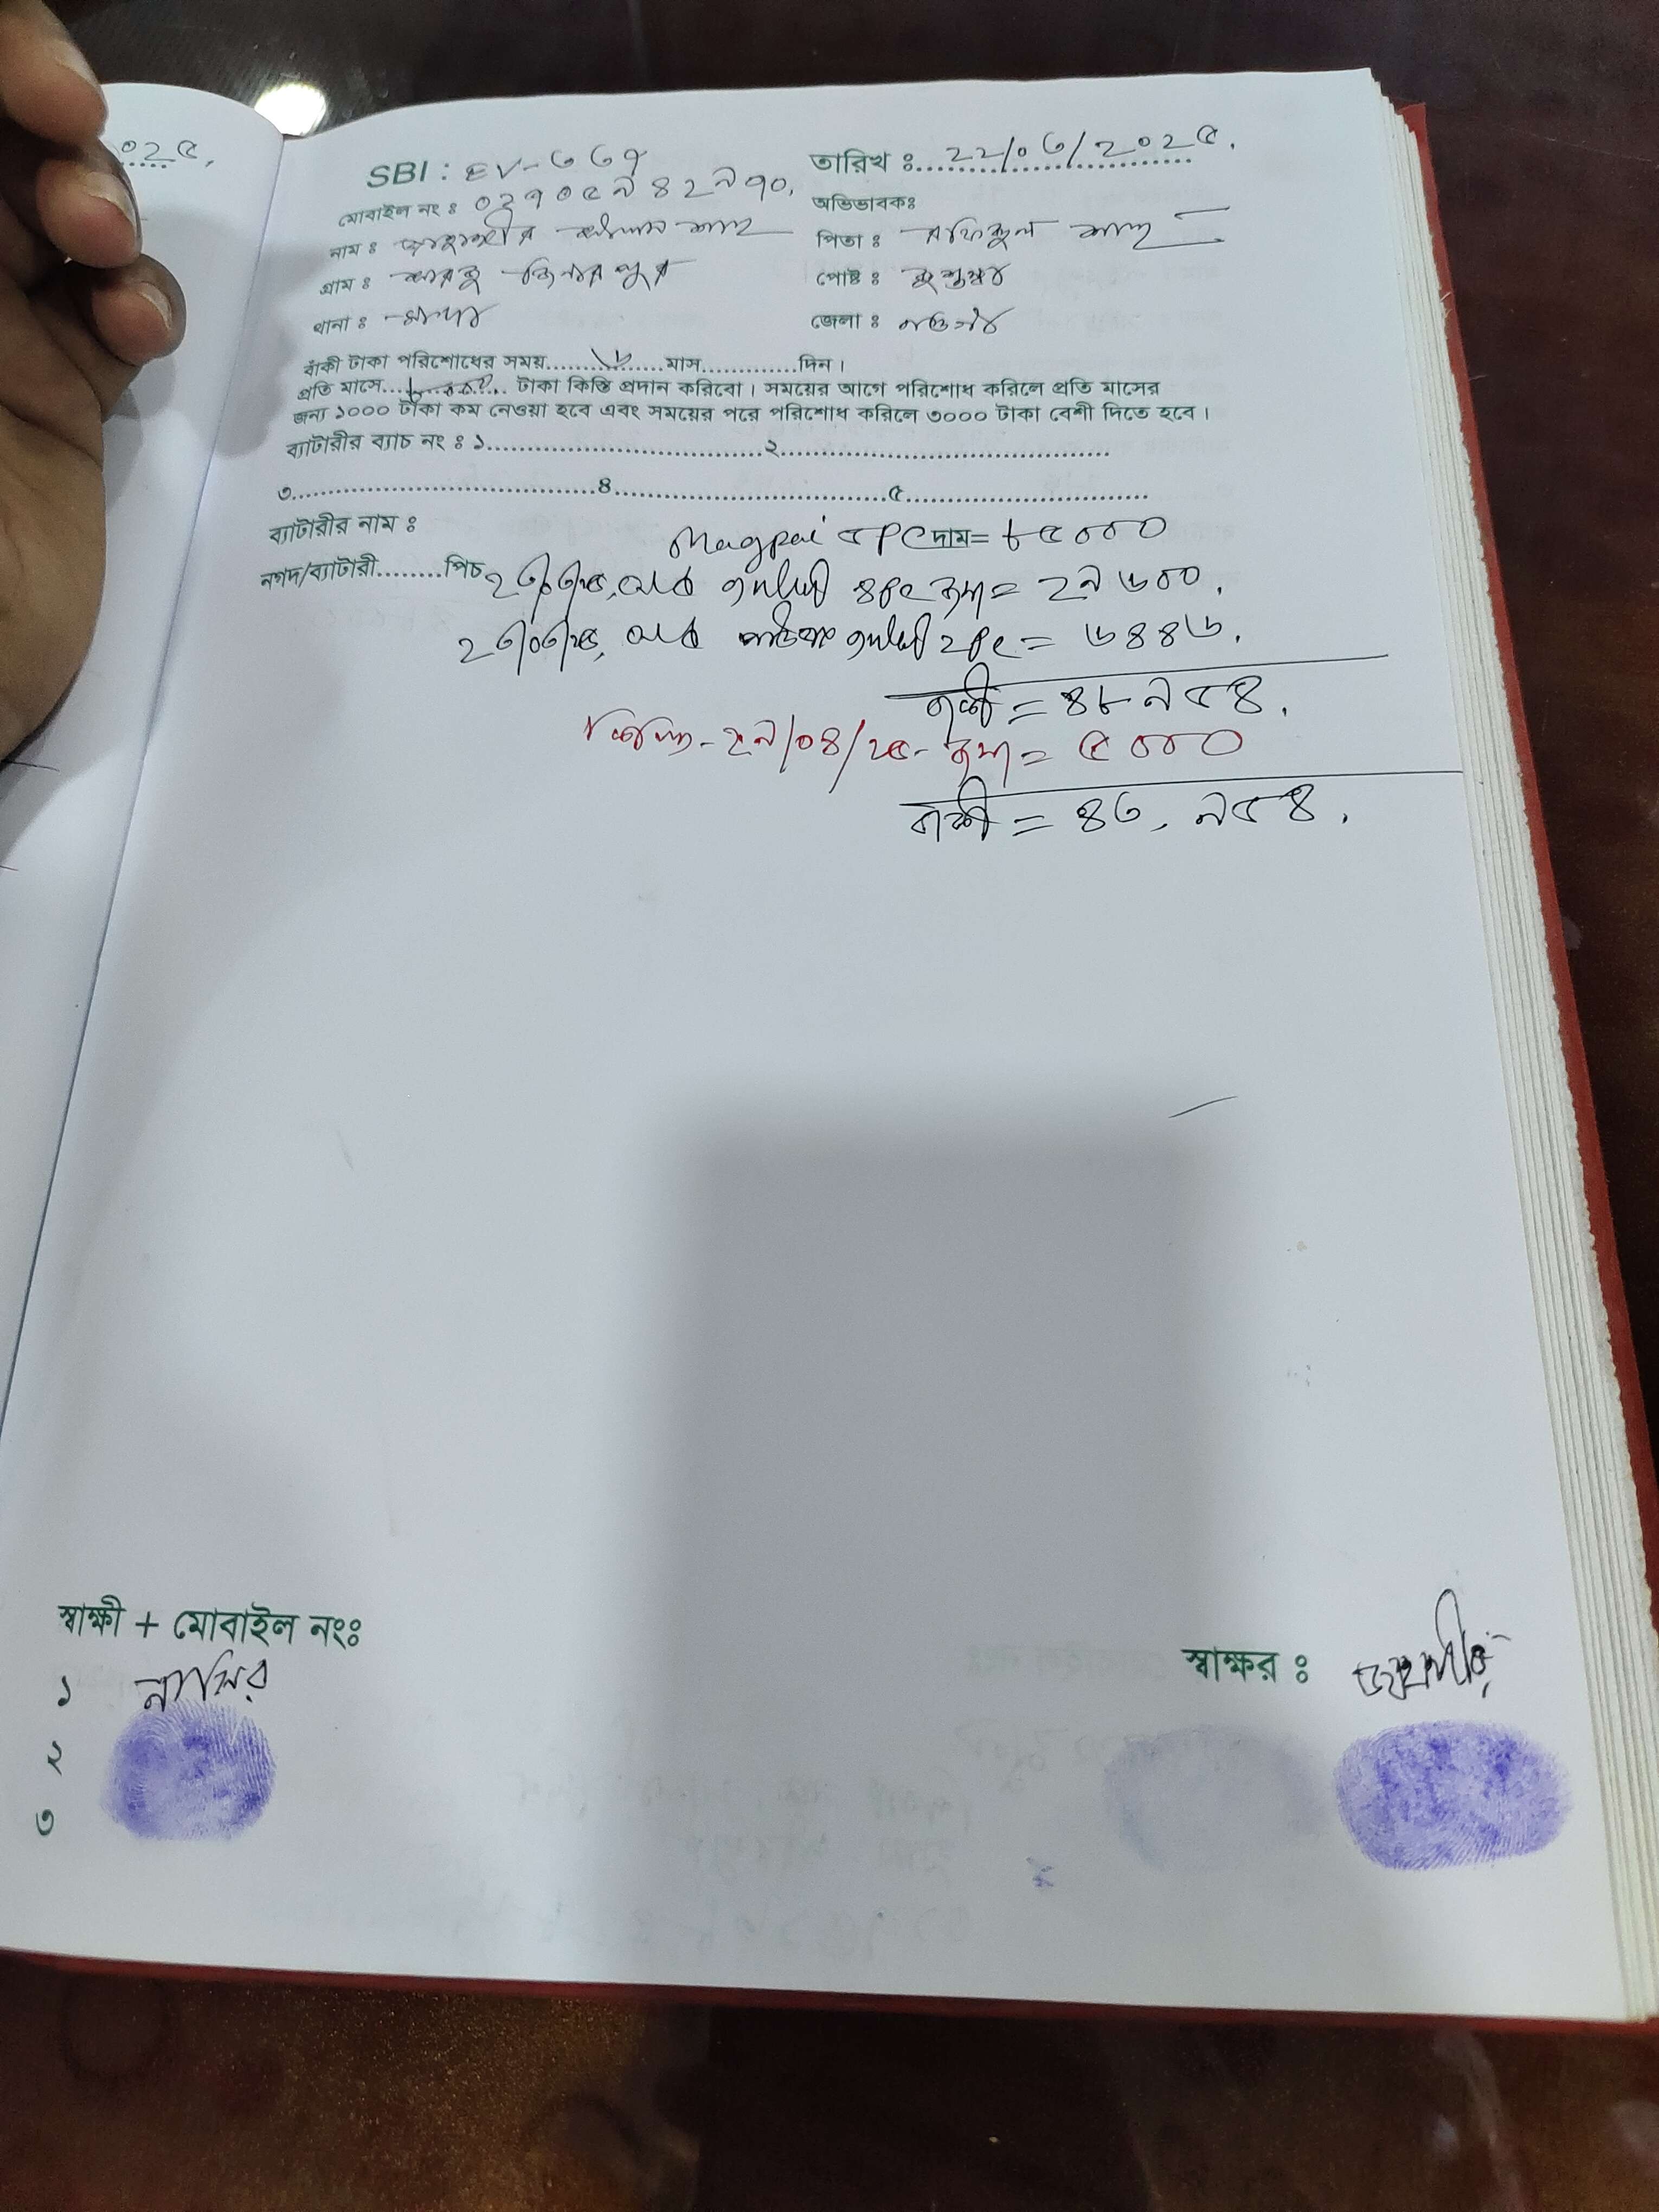 ০২৫,
SBI : EV-৩৩৭
তারিখ ঃ ২২/০৩/২০২৫.
মোবাইল নং ঃ ০১৭০৫৯৪২৯৭০,
অভিভাবকঃ
নাম ঃ জাহাঙ্গীর
পিতা ঃ রফিকুল
গ্রাম ঃ
পোষ্ট ঃ
থানা ঃ
জেলা ঃ নওগাঁ
বাঁকী টাকা পরিশোধের সময়.........৬......মাস.............দিন।
প্রতি মাসে.................. টাকা কিস্তি প্রদান করিবো। সময়ের আগে পরিশোধ করিলে প্রতি মাসের
জন্য ১০০০ টাকা কম নেওয়া হবে এবং সময়ের পরে পরিশোধ করিলে ৩০০০ টাকা বেশী দিতে হবে।
ব্যাটারীর ব্যাচ নং ঃ ১....................................২............................................
৩........................................৪...................................৫................................
ব্যাটারীর নাম ঃ
Magpai ৫Pc দাম= ৮৫০০০
নগদ/ব্যাটারী.........পিচ
৪Pc জমা = ২৯৬০০.
২Pc = ৬৪৪৬.
বাকী = ৪৮৯৫৪.
কিস্তি - ২৯/০৪/২৫ - জমা = ৫০০০
বাকী = ৪৩,৯৫৪.
স্বাক্ষী + মোবাইল নংঃ
স্বাক্ষর ঃ জাহাঙ্গীর
১ নাসির
২
৩